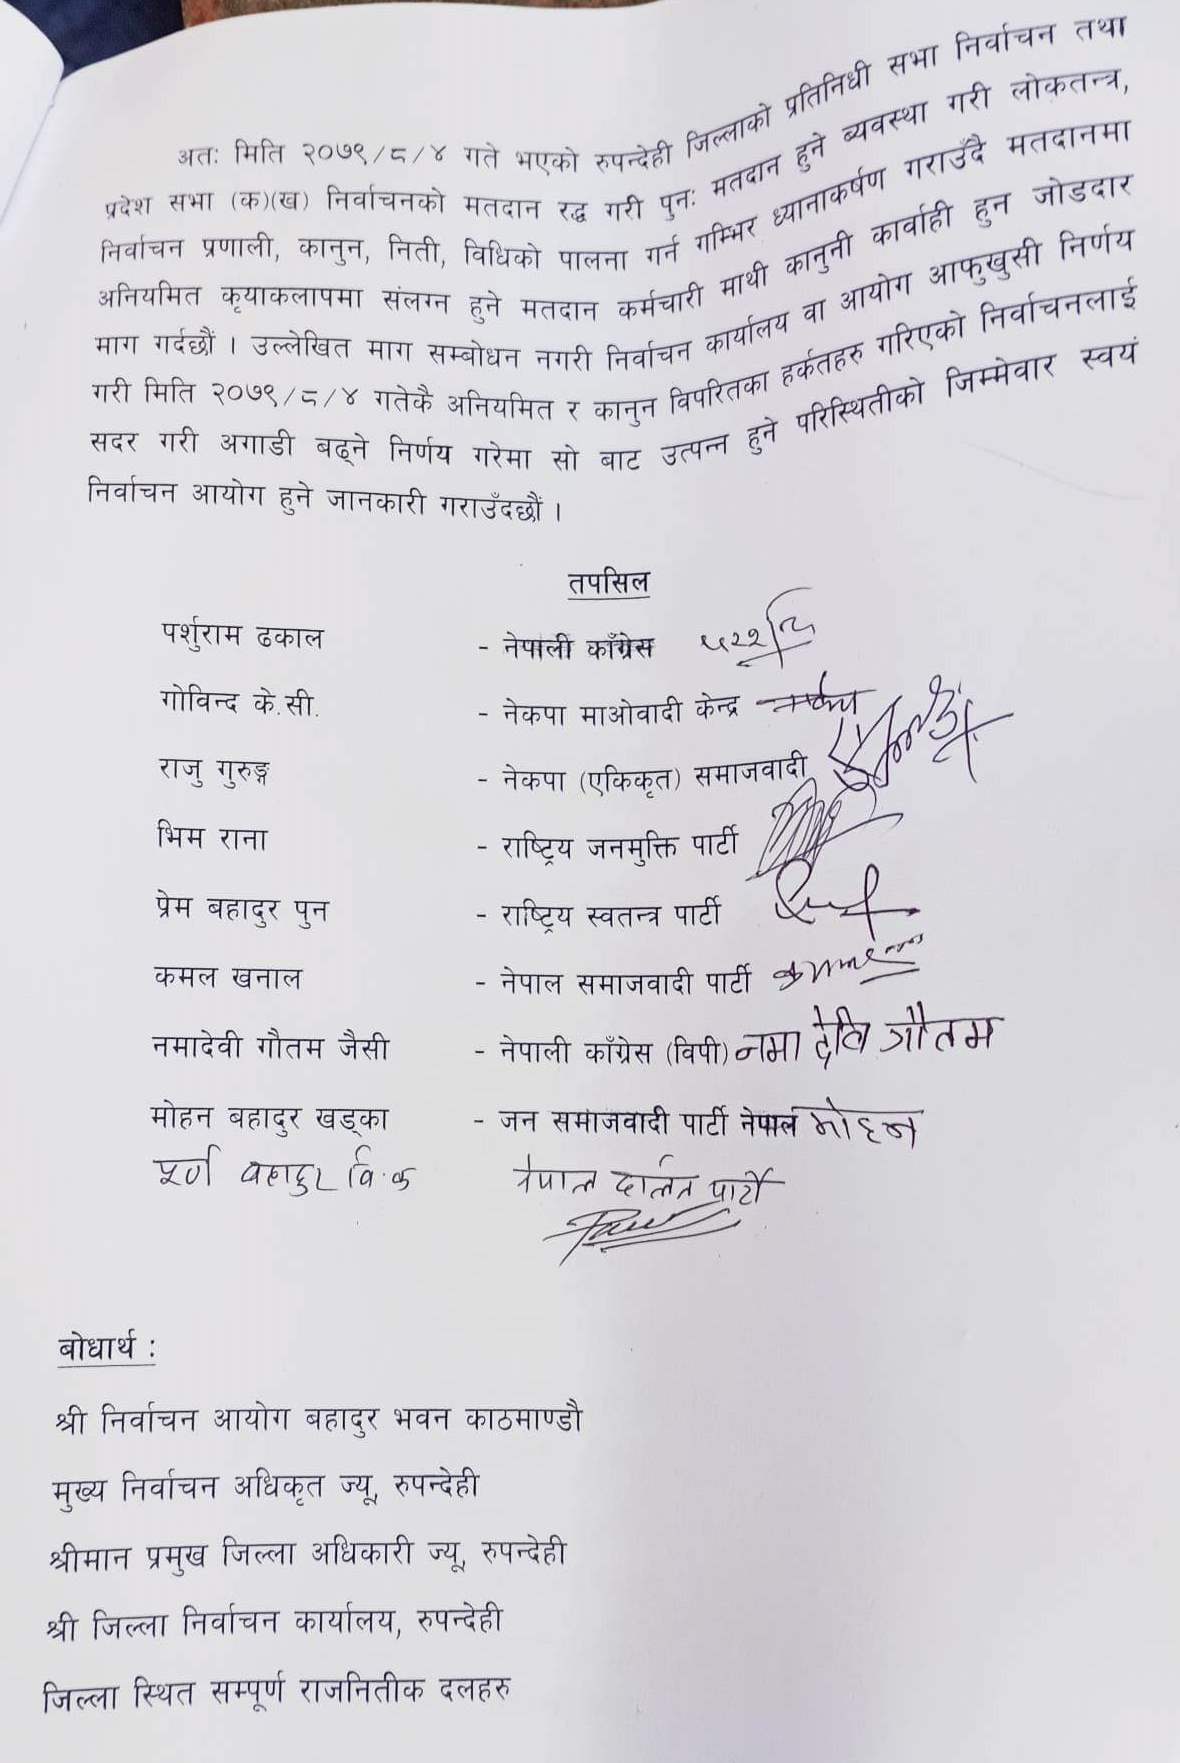 अतः मिति २०७९/८/४ गते भएको रुपन्देही जिल्लाको प्रतिनिधी सभा निर्वाचन तथा
प्रदेश सभा (क)(ख) निर्वाचनको मतदान रद्ध गरी पुनः मतदान हुने ब्यवस्था गरी लोकतन्त्र,
निर्वाचन प्रणाली, कानुन, निती, विधिको पालना गर्न गम्भिर ध्यानाकर्षण गराउँदै मतदानमा
अनियमित कृयाकलापमा संलग्न हुने मतदान कर्मचारी माथी कानुनी कार्वाही हुन जोडदार
माग गर्दछौं । उल्लेखित माग सम्बोधन नगरी निर्वाचन कार्यालय वा आयोग आफुखुसी निर्णय
गरी मिति २०७९/८/४ गतेकै अनियमित र कानुन विपरितका हर्कतहरु गरिएको निर्वाचनलाई
सदर गरी अगाडी बढ्ने निर्णय गरेमा सो बाट उत्पन्न हुने परिस्थितीको जिम्मेवार स्वयं
निर्वाचन आयोग हुने जानकारी गराउँदछौं ।
तपसिल
पर्शुराम ढकाल - नेपाली काँग्रेस
गोविन्द के.सी. - नेकपा माओवादी केन्द्र
राजु गुरुङ्ग - नेकपा (एकिकृत) समाजवादी
भिम राना - राष्ट्रिय जनमुक्ति पार्टी
प्रेम बहादुर पुन - राष्ट्रिय स्वतन्त्र पार्टी
कमल खनाल - नेपाल समाजवादी पार्टी
नमादेवी गौतम जैसी - नेपाली काँग्रेस (विपी) नमा देवि गौतम
मोहन बहादुर खड्का - जन समाजवादी पार्टी नेपाल मोहन
पूर्ण बहादुर वि.क नेपाल दलित पार्टी
बोधार्थ :
श्री निर्वाचन आयोग बहादुर भवन काठमाण्डौ
मुख्य निर्वाचन अधिकृत ज्यू, रुपन्देही
श्रीमान प्रमुख जिल्ला अधिकारी ज्यू, रुपन्देही
श्री जिल्ला निर्वाचन कार्यालय, रुपन्देही
जिल्ला स्थित सम्पूर्ण राजनितीक दलहरु